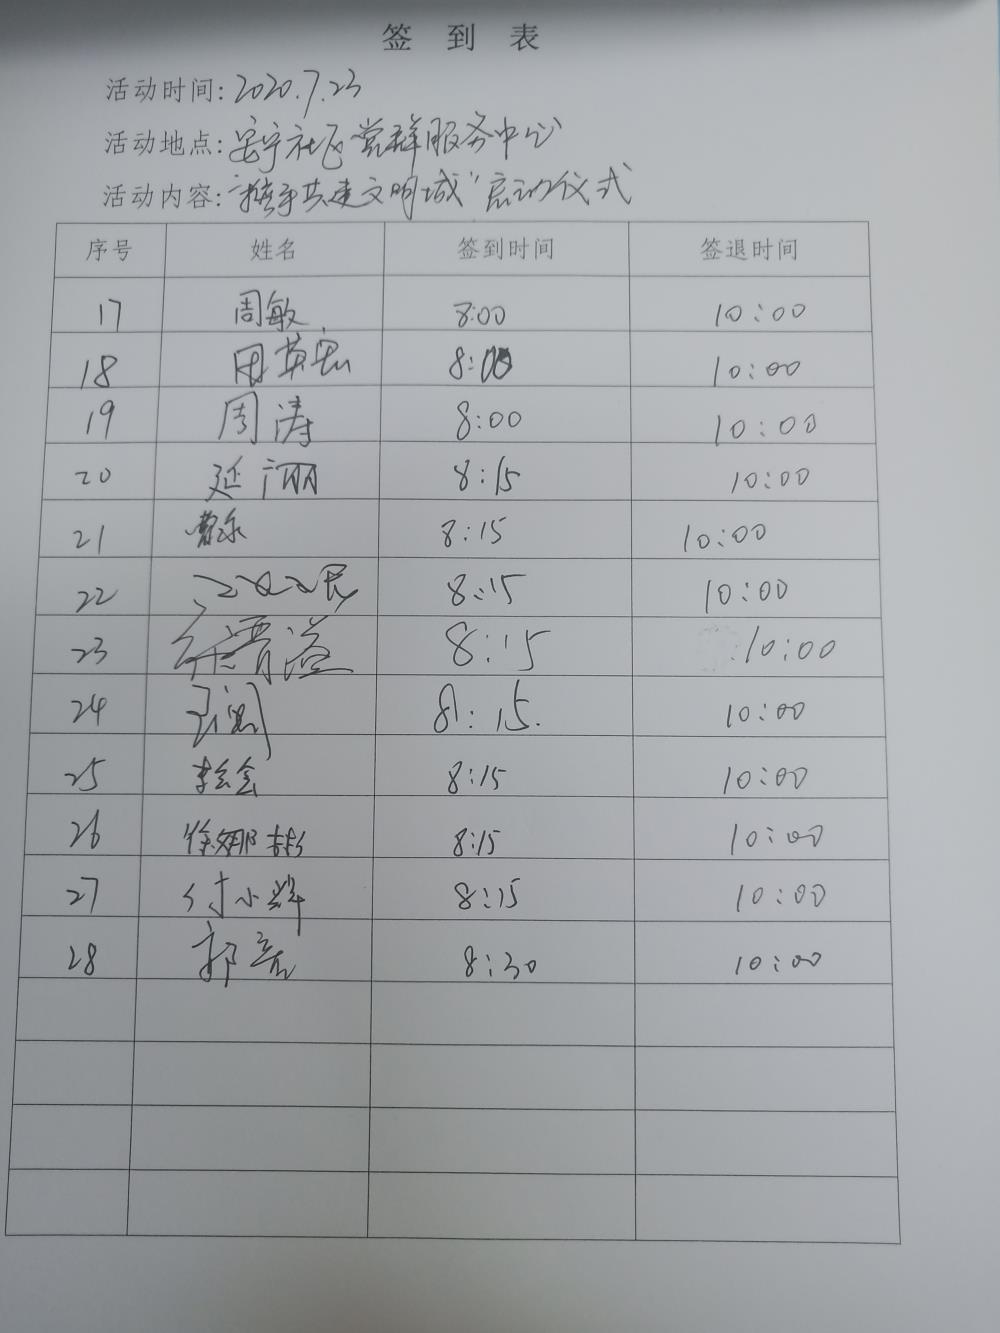 签到表
活动时间:2020.7.23
活动地点:安宁社区党群服务中心
活动内容:"携手共建文明城"启动仪式
序号 姓名 签到时间 签退时间
17 周敏 8:00 10:00
18 8:00 10:00
19 周涛 8:00 10:00
20 延丽 8:15 10:00
21 8:15 10:00
22 8:15 10:00
23 8:15 10:00
24 8:15. 10:00
25 8:15 10:00
26 徐娜 8:15 10:00
27 付小辉 8:15 10:00
28 郭亮 8:30 10:00